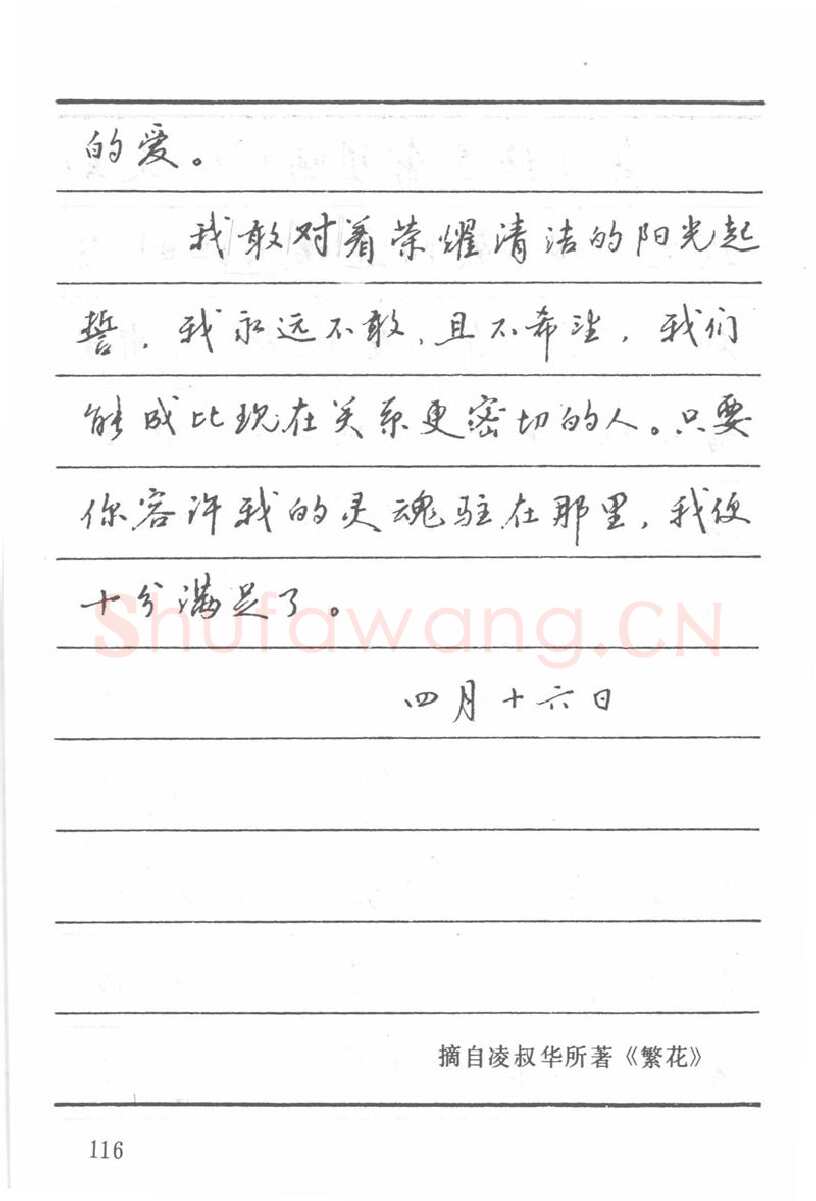 的爱。
我敢对着荣耀清洁的阳光起
誓，我永远不敢，且不希望，我们
能成比现在关系更密切的人。只要
你容许我的灵魂驻在那里，我便
十分满足了。
Shufawang.CN
四月十六日
摘自凌叔华所著《繁花》
116